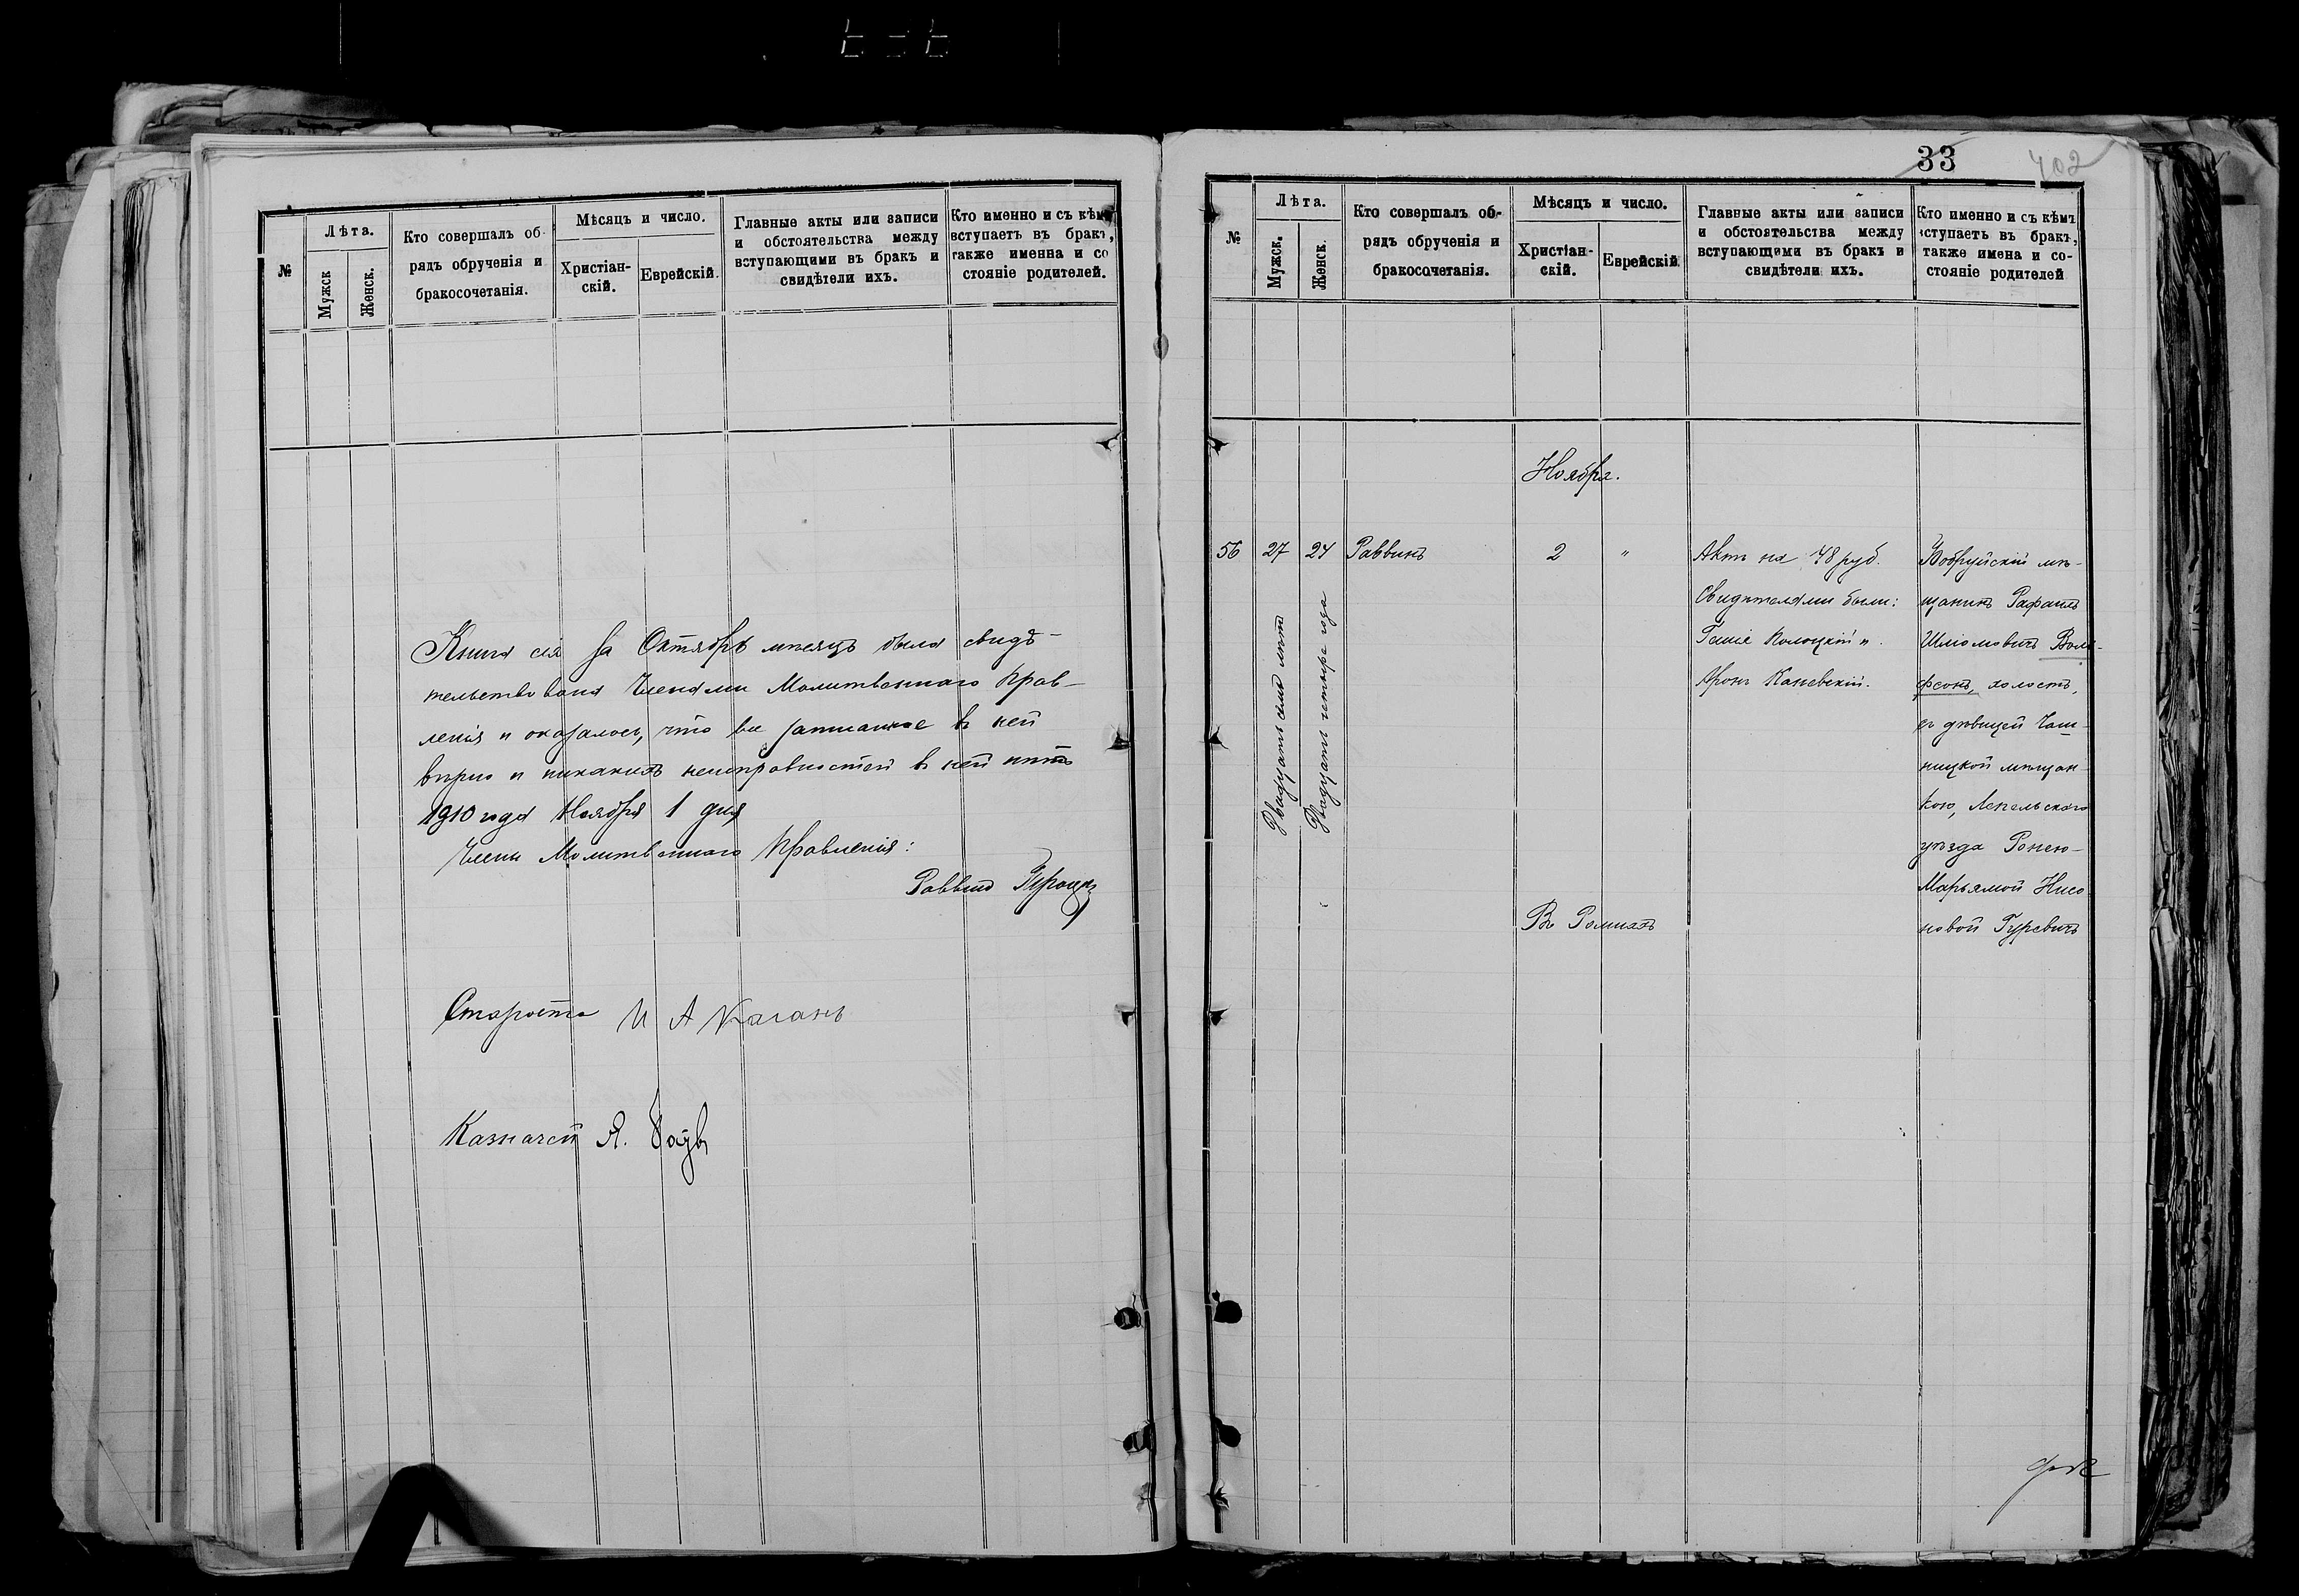 №
Лѣта.
Мужск
Женск.
Кто совершалъ об-
рядъ обрученія и
бракосочетанія.
Мѣсяцъ и число.
Христіан-
скій.
Еврейскій.
Главные акты или записи
и обстоятельства между
вступающими въ бракъ и
свидѣтели ихъ.
Кто именно и съ кѣмъ
вступаетъ въ бракъ,
также именна и со
стояніе родителей.
Книга сія за Октябрь мѣсяцъ была свидѣ-
тельствована Членами Молитвеннаго Прав-
ленія и оказалось, что все записанное въ ней
вѣрно и никакихъ неисправностей въ ней нѣтъ
1910 года Ноября 1 дня
Члены Молитвеннаго Правленія:
Раввинъ
Староста И А Каганъ
Казначей Я.
33
402
№
Лѣта.
Мужск.
Женск.
Кто совершалъ об-
рядъ обрученія и
бракосочетанія.
Мѣсяцъ и число.
Христіан-
скій.
Еврейскій.
Главные акты или записи
и обстоятельства между
вступающими въ бракъ и
свидѣтели ихъ.
Кто именно и съ кѣмъ
вступаетъ въ бракъ,
также имена и со-
стояніе родителей
Ноября.
56
27
Двадцать семь лѣтъ
24
Двадцать четыре года
Раввинъ
2
"
Въ Ромнахъ
Актъ на 48 руб.
Свидѣтелями были:
и
Аронъ Каневскій.
Бобруйскій мѣ-
щанинъ Рафаилъ
Шліомовичъ Воль-
фсонъ, холостъ,
съ дѣвицей Чаш-
ницкой мѣщан-
кою, Лепельскаго
уѣзда Ронею-
Марьямой Нисо-
новой Гуревичъ